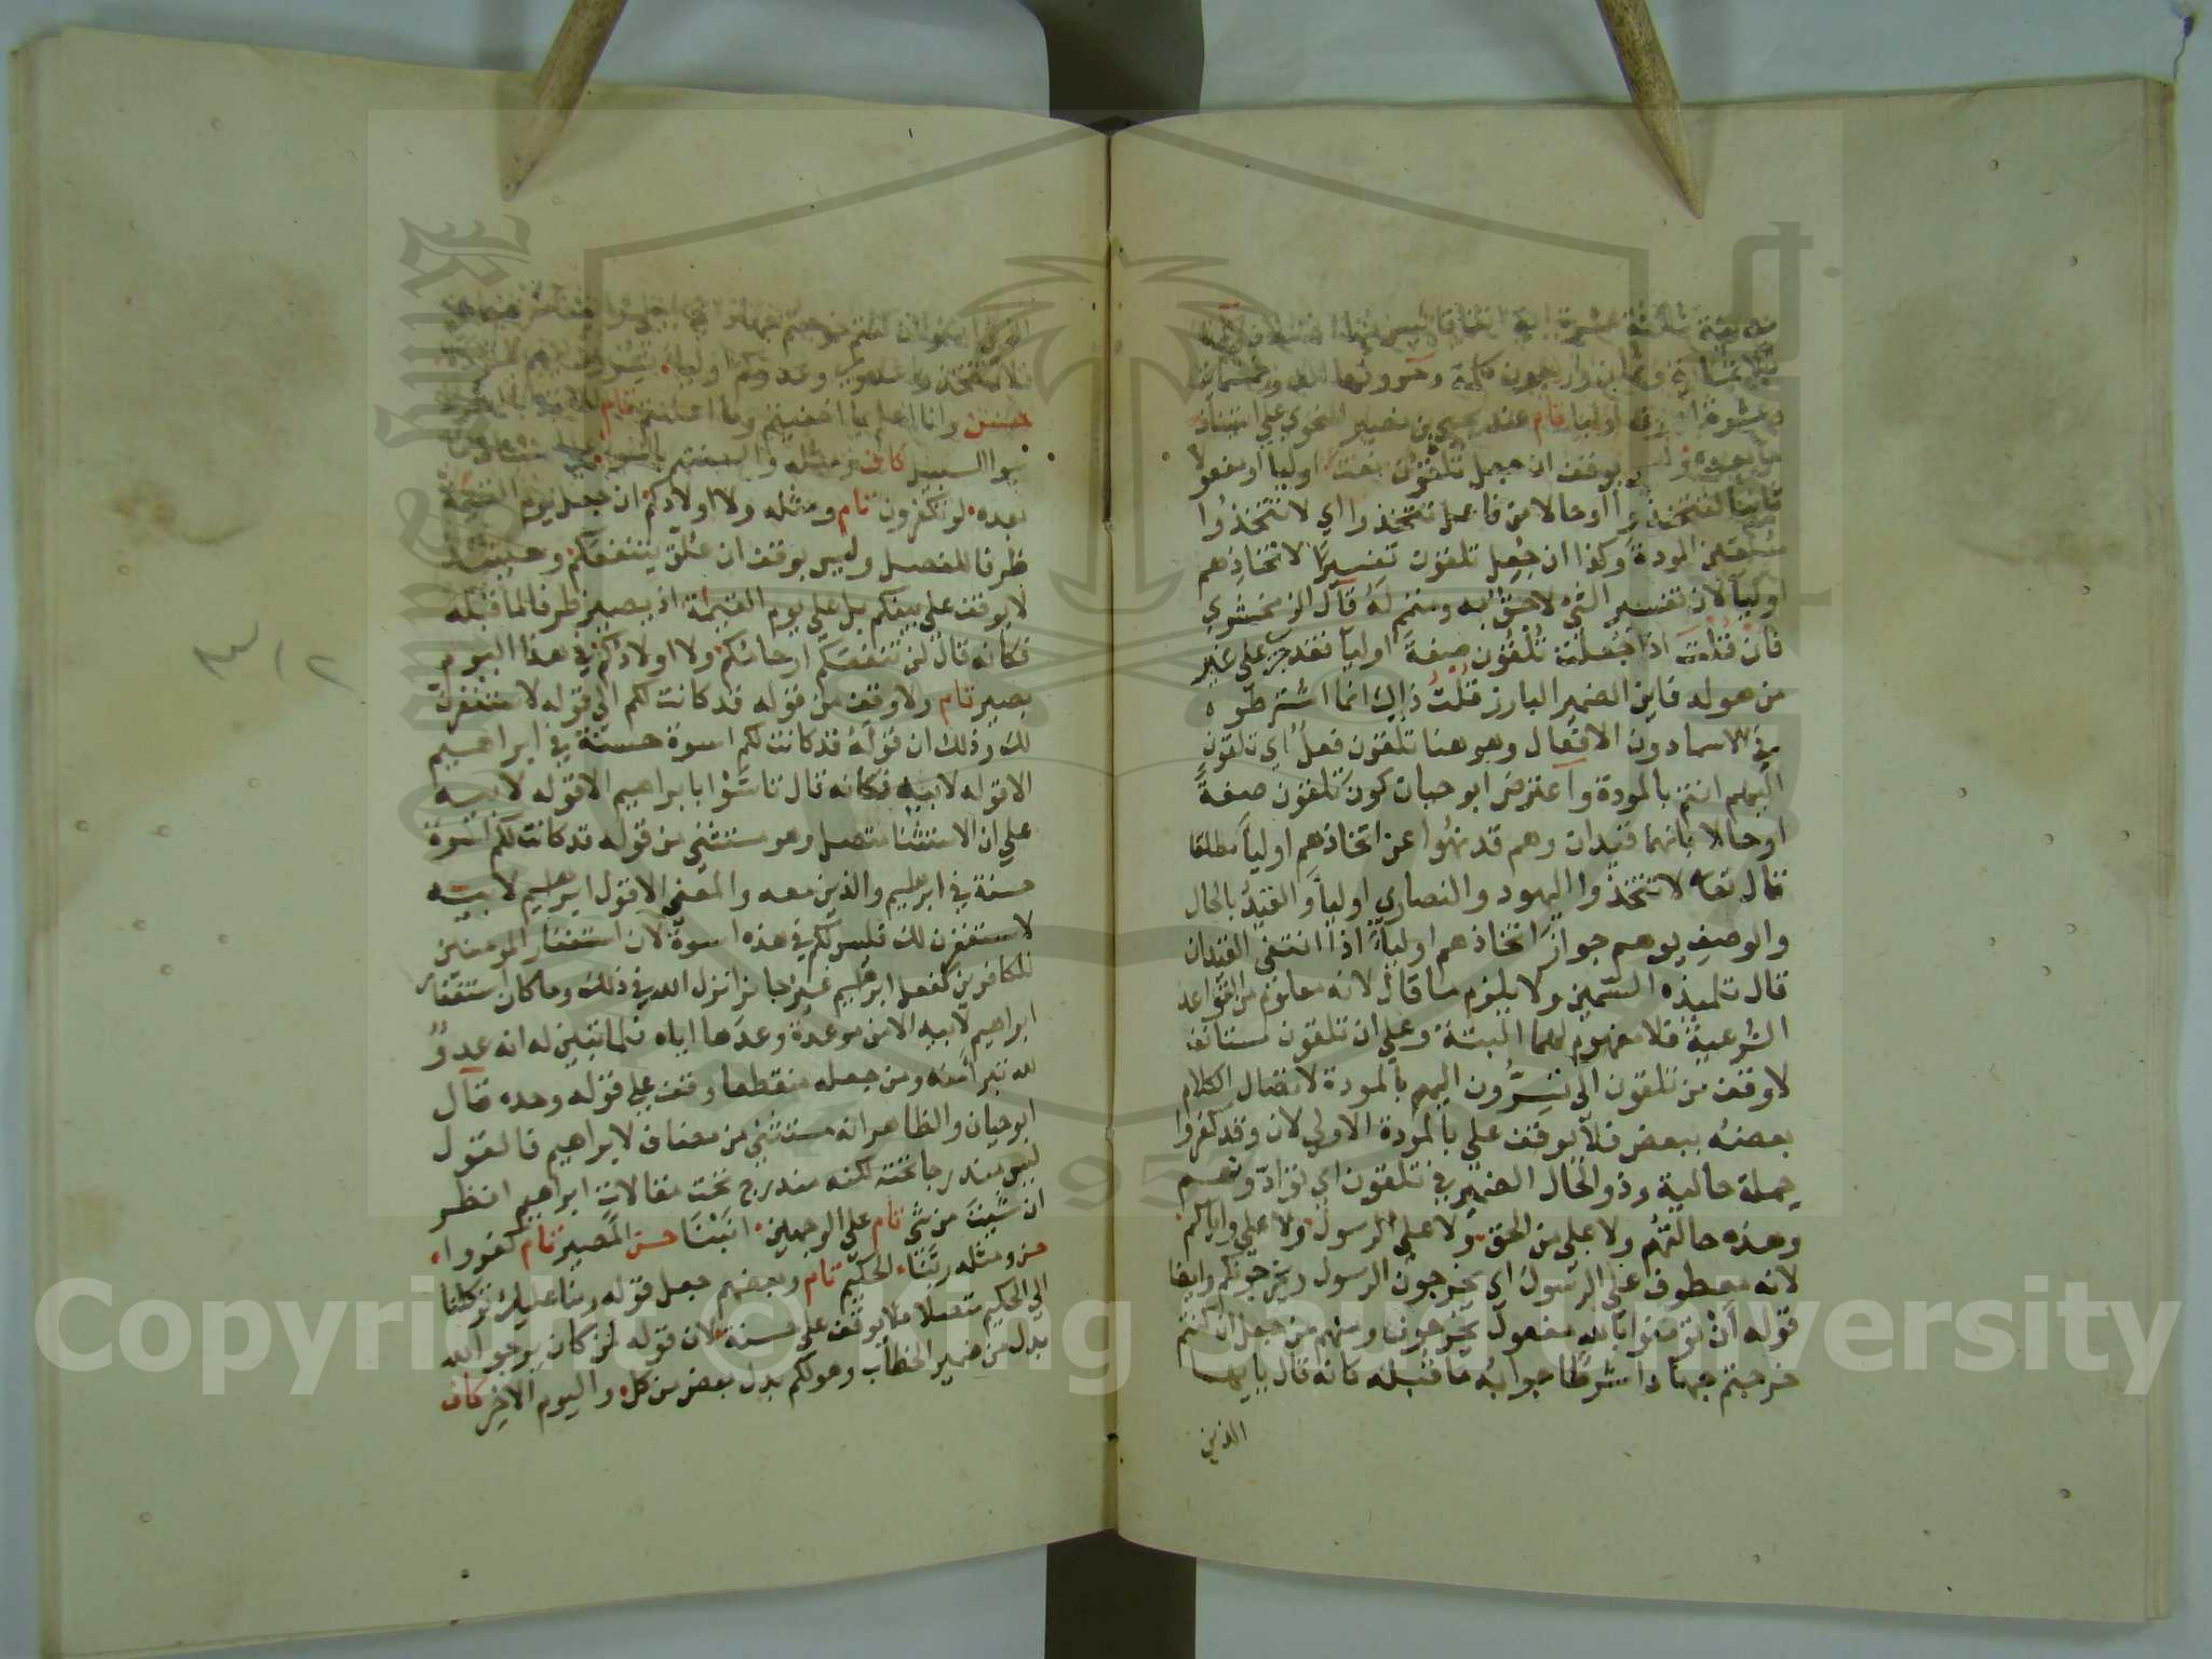 مدنية ثلاثة عشرة اية اتفاقا ليس فيها اختلاف
ثلاثماية وثمان واربعون كلمة وحروفها الف وخمسماية
وعشرة احرف اوليا تام عند يحيي بن نصير النحوي علي استيناف
ما بعده وليس بوقف ان جعل تلقون نعت اوليا او مفعولا
ثانيا لتتخذوا او حالا من فاعل تتخذوا اي لا تتخذوا
ملقين المودة وكذا ان جُعِل تلقون تفسيرًا لاتخاذِهم
اوليآ لان تفسير الشئ لاحقٌ به ومتمم لَهُ قال الزمخشري
فان قُلت اذا جَعلته تُلقُون صفةً اوليآ فقد جري علي غير
من هو له فاين الضمير البارز قُلتُ ذلك انما اشترطوه
في الاسما دون الافعال وهو هنا تلقون فعلٌ اي تلقون
اليهم انتم بالمودة واعترض ابو حيان كونَ تلقون صفةً
او حالا بانهما قيدان وهم قد نهُوا عن اتخاذهم اوليآ مطلقا
قال تعا لا تتخذوا اليهود والنصاري اوليآ والقيدُ بالحال
والوصف يوهم جوازَ اتخاذهم اوليآء اذا انتفي القيدان
قال تلميذه السّمين ولا يلزم ما قال لانه معلوم من القواعد
الشرعية فلا مفهوم لهما البتة وعلي ان تلقون مستانف
لا وقف من تلقون الي تسِرُّون اليهم بالمودة لاتصال الكلام
بعضه ببعض فلا يوقف علي بالمودة الاولي لان وقد كفروا
جملة حالية وذو الحال الضمير في تلقون اي توادّونهم
وهذه حالتهُم ولا علي من الحق ولا علي الرسول ولا علي واياكم
لانه معطوف علي الرسول اي يخرجون الرسول ويخرجونكم وايضا
قوله أن تومنوا بالله مفعول يخرجون ومنهم من جعل ان كنتم
خرجتم جهادا شرطا جوابُه ما قبله كانه قال يايها
الذين
الذين امنوا ان كنتم خرجتم جهادا في
فلا تتخذوا عدوي وعدوكم اوليآء
حسن وانا اعلم بما اخفيتم وما اعلنتم تام
سوا السبيل كاف ومثله والسنتهم بالسوء
بعده لو تكفرون تام ومثله ولا اولادكم ان جعل يوم القيمة
ظرفا للفصل وليس بوقف ان عُلق بتنفعكم وحينئذ
لا يوقف علي بينكم بل علي يوم القيمة اذ يصير ظرفا لما قبله
فكانه قال لن تنفعكم ارحامكم ولا اولادكم في هذا اليوم
بصير تام ولا وقف من قوله قد كانت لكم الي قوله لاستغفرن
لك وذلك ان قوله قد كانت لكم اسوة حسنة في ابراهيم
الا قوله لابيه فكانه قال تاسّوْا بابراهيم الا قوله لابيه
علي ان الاستثنا متصل وهو مستثني من قوله قد كانت لكم اسوة
حسنة في ابرهيم والذين معه والمعني الا قول ابرهيم لابيه
لاستغفرن لك فليس لكم في هذه اسوة لان استغفار المومنين
للكافرين كفعل ابرهيم غيرُ جائز انزل الله في ذلك وما كان استغفار
ابراهيم لابيه الا من موعدة وعدَها اياه فلما تبين له انه عدوٌ
لله تبرأ منه ومن جعله منقطعا وقف علي قوله وحده قال
ابو حيان والظاهر انه مستثني من مضاف لابراهيم فالقول
ليس مندرجا تحته لكنه مندرج تحت مقالات ابراهيم انظر
ان شيت من شئ تام علي الوجهين انبْنَا حسن المصير تام كفروا
حسن ومثله ربّنا الحكيم تام وبعضهم جعل قوله ربنا عليك توكلنا
الي الحكيم متصلا فلا يوقف علي حسنة لان قوله لمن كان يرجو الله
بدل من ضمير الخطاب وهو لكم بدل بعض من كل واليوم الاخر كاف
٢١٣
Copyright © King Saud University
1957